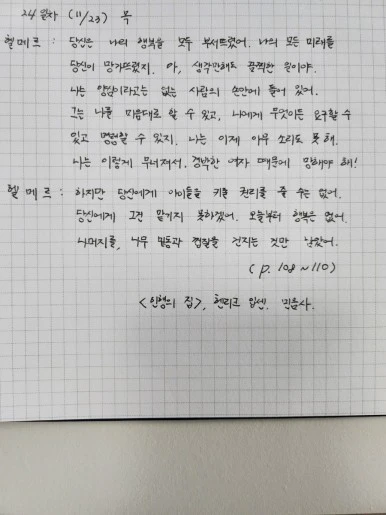 24일차 (11/23) 목
헬메르 : 당신은 나의 행복을 모두 부서뜨렸어. 나의 모든 미래를
당신이 망가뜨렸지. 아, 생각만해도 끔찍한 일이야.
나는 양심이라고는 없는 사람의 손안에 들어 있어.
그는 나를 마음대로 할 수 있고, 나에게 무엇이든 요구할 수
있고 명령할 수 있지. 나는 이제 아무 소리도 못 해.
나는 이렇게 무너져서. 경박한 여자 때문에 망해야 해!
헬메르 : 하지만 당신에게 아이들을 키울 권리를 줄 수는 없어.
당신에게 그건 맡기지 못하겠어. 오늘부터 행복은 없어.
나머지를, 나무 밑동과 껍질을 건지는 것만 남았어.
(p. 108~110)
<인형의 집>, 헨리크 입센. 민음사.